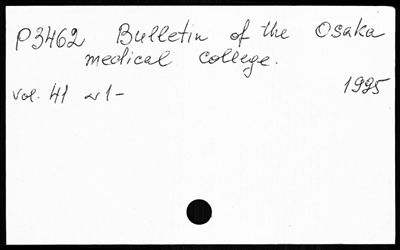 P3462 Bulletin of the Osaka
medical college.
vol. 41 N1- 1995